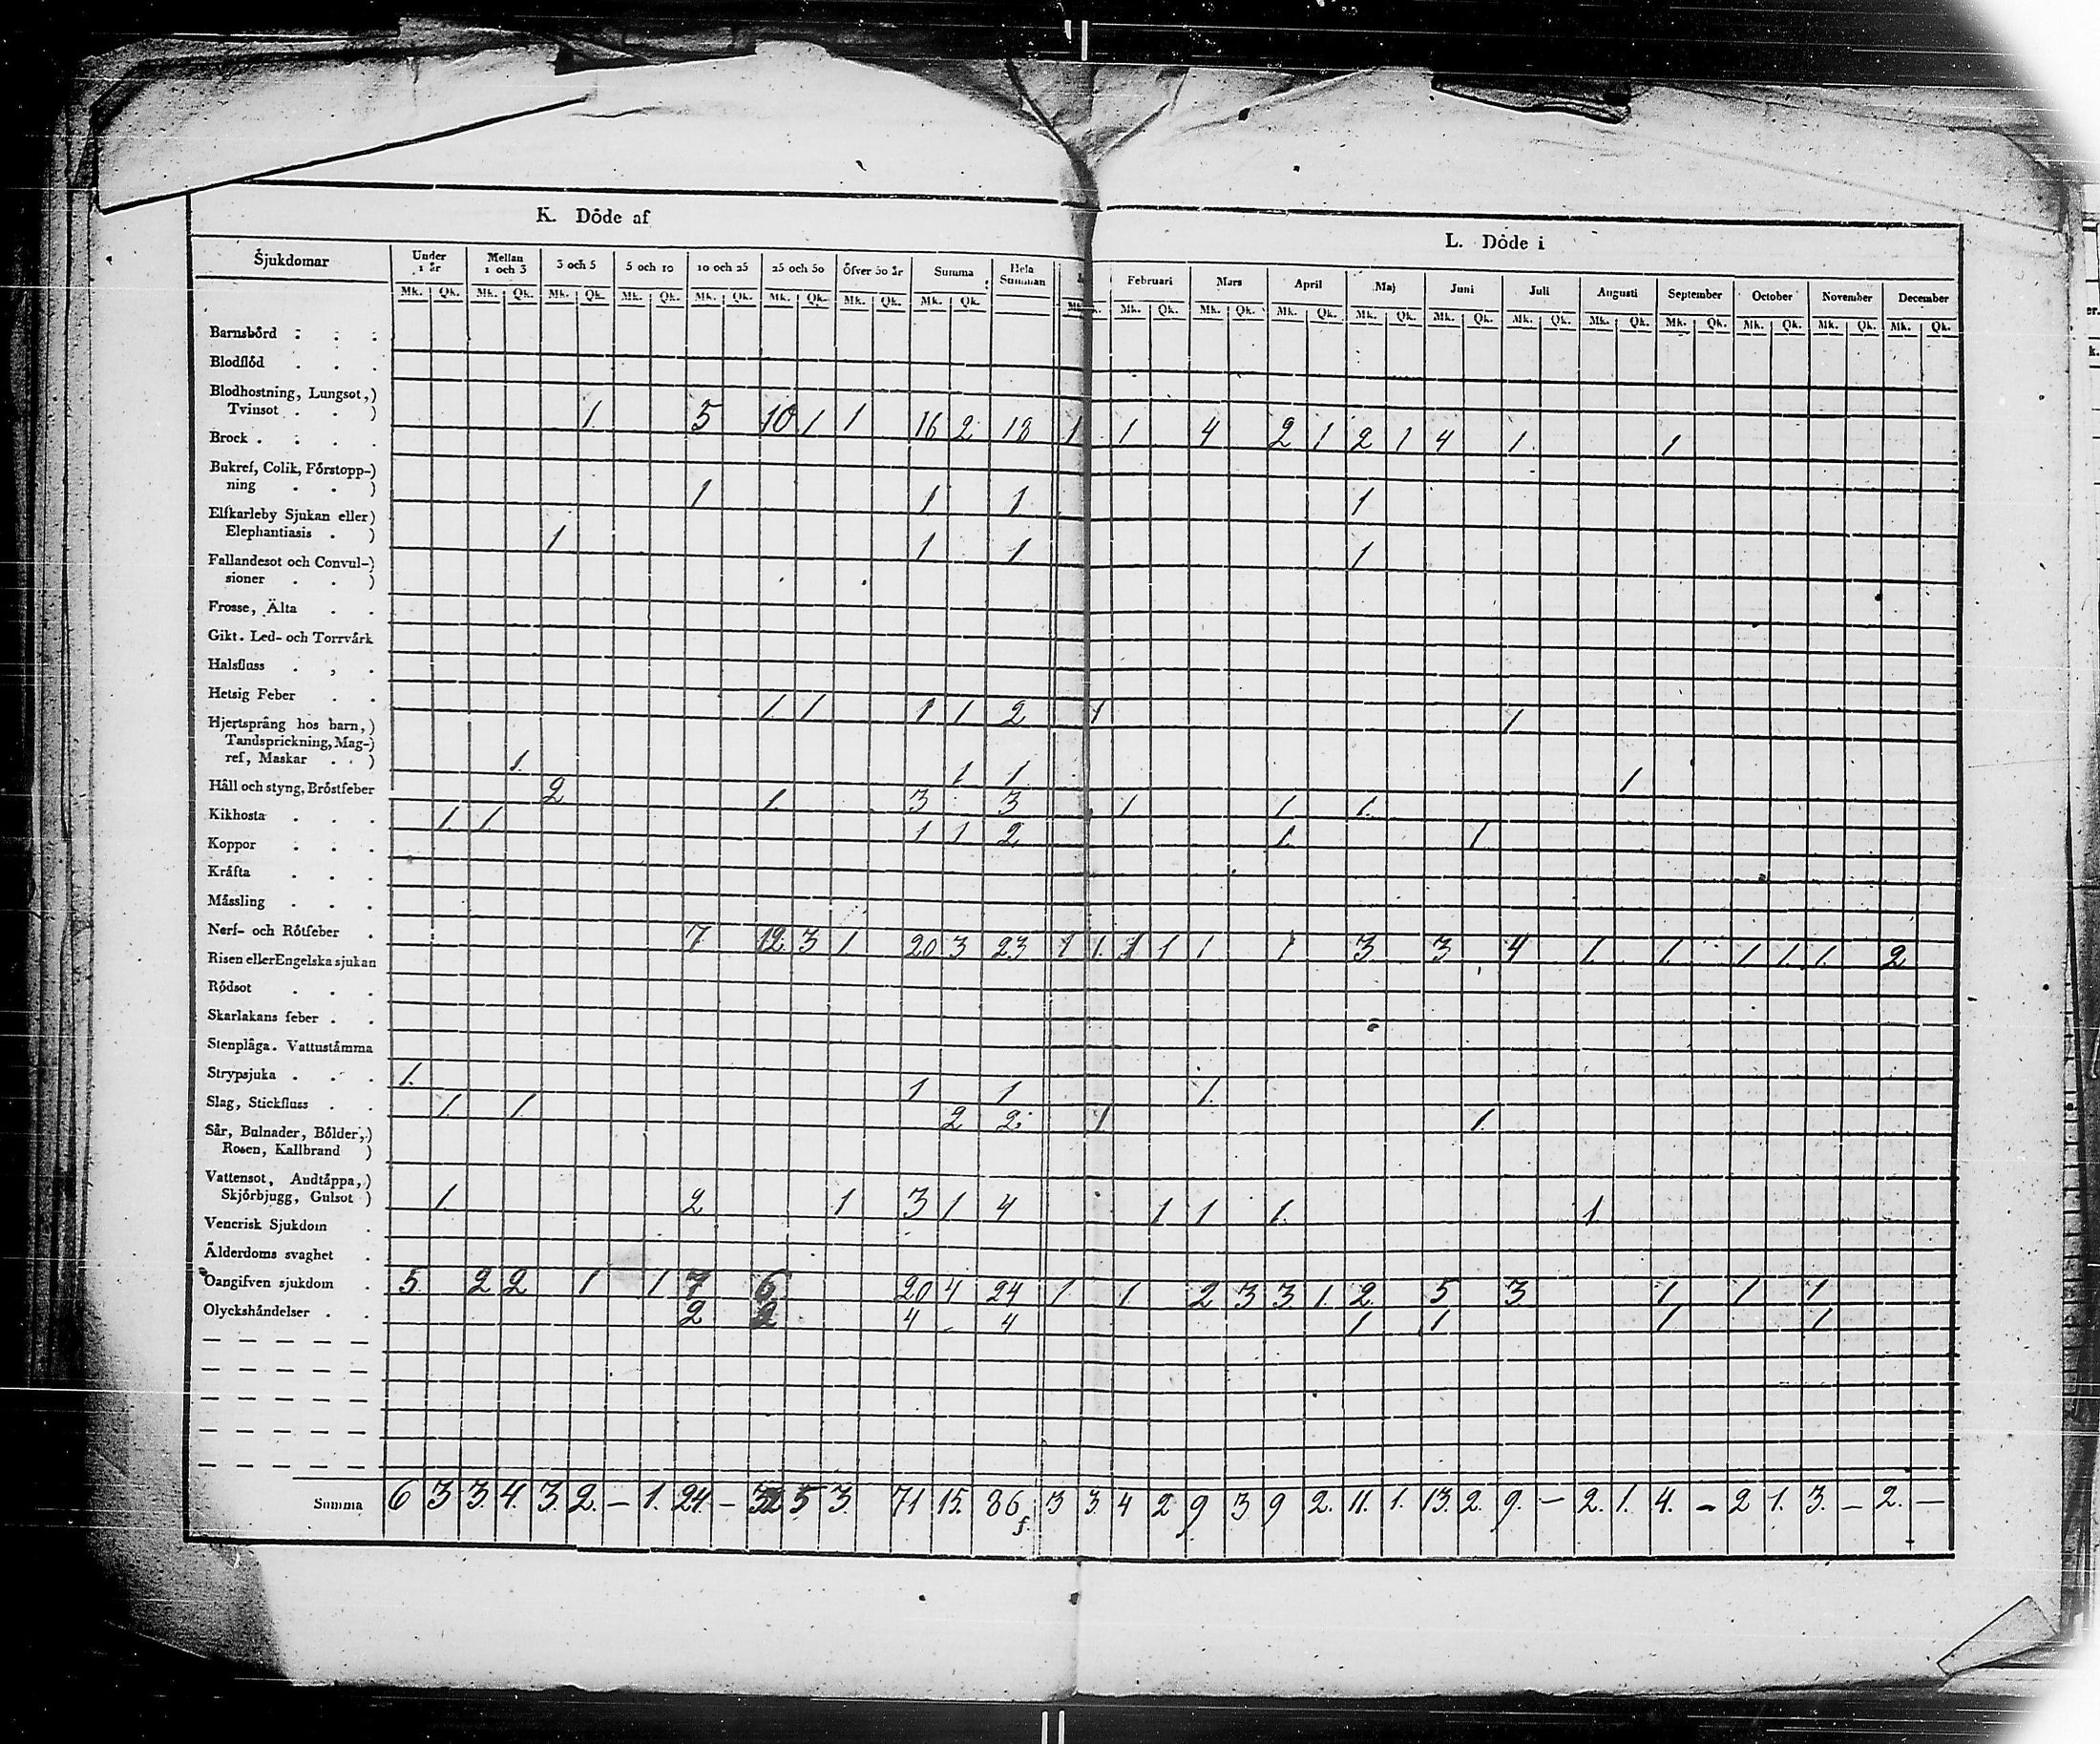 K. Döde af
L. Döde i
Sjukdomar Under 1 år Mellan 1 och 3 3 och 5 5 och 10 10 och 25 25 och 50 Öfver 50 år Summa Hela Summan Februari Mars April Maj Juni Juli Augusti September October November December
Mk. Qk. Mk. Qk. Mk. Qk. Mk. Qk. Mk. Qk. Mk. Qk. Mk. Qk. Mk. Qk. Mk. Mk. Qk. Mk. Qk. Mk. Qk. Mk. Qk. Mk. Qk. Mk. Qk. Mk. Qk. Mk. Qk. Mk. Qk. Mk. Qk. Mk. Qk.
Barnsbörd
Blodflöd
Blodhostning, Lungsot,)
Tvinsot . . ) 1. 5 10 1 1 16 2 18 1 1 4 2 1 2 1 4 1. 1
Brock
Bukref, Colik, Förstopp-)
ning . . ) 1 1 1 1
Elfkarleby Sjukan eller)
Elephantiasis . ) 1 1 1 1
Fallandesot och Convul-)
sioner . . )
Frosse, Älta
Gikt. Led- och Torrvärk
Halsfluss
Hetsig Feber 1. 1 1 1 2 1 1
Hjertsprång hos barn,)
Tandsprickning, Mag-)
ref, Maskar . . ) 1. 1 1 1
Håll och styng, Bröstfeber 2 1. 3 3 1 1 1.
Kikhosta 1. 1. 1 1 2 1. 1.
Koppor
Kräfta
Mässling
Nerf- och Rötfeber 7 12 3 1. 20 3 23 1 1. 1 1 1 1 3 3 4 1. 1. 1. 1. 1. 2
Risen eller Engelska sjukan
Rödsot
Skarlakans feber
Stenplåga. Vattustämma
Strypsjuka 1. 1 1 1.
Slag, Stickfluss 1. 1. 2 2. 1 1.
Sår, Bulnader, Bölder,)
Rosen, Kallbrand )
Vattensot, Andtäppa,)
Skjörbjugg, Gulsot ) 1. 2 1 3 1 4 1 1 1. 1.
Venerisk Sjukdom
Ålderdoms svaghet
Oangifven sjukdom 5. 2 2 1 1 7 6 20 4 24 1 1. 2 3 3 1. 2. 5 3 1 1 1
Olyckshändelser 2 2 4 - 4 1 1 1 1
Summa 6 3 3. 4. 3. 2. - 1. 24. - 32 5 3. 71 15 86 3 3. 4 2 9 3 9 2. 11. 1. 13. 2. 9. - 2. 1. 4. - 2 1. 3. - 2. -